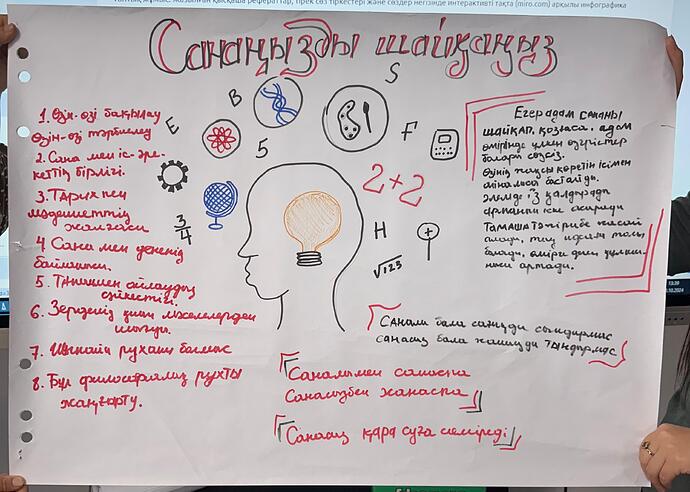 жазылған қысқаша рефераттар, тірек сөз тіркестері және сөздер негізінде интерактивті тақта (miro.com) арқылы инфографика
Санаңызды шайқаңыз
1. Өзін-өзі бақылау
Өзін-өзі тәрбиелеу
2. Сана мен іс-әре-
кеттің бірлігі.
3. Тарих пен
мәдениеттің
жалғасы
4 Сана мен дененің
байланысы.
5. Таным мен ойлаудың
6. Зерденің
шығуы.
7. рухани болмыс
8. Бұл философиялық рухты
жаңғырту.
S
B
E
5
F
2+2
3/4
H
√123
Егер адам сананы
шайқап, қозғаса, адам
өмірінде үлкен өзгерістер
болары сөзсіз.
Өзінің жақсы көретін ісімен
айналыса бастайды.
Әлемде із қалдырады
арманын іске асырады
Тамаша тәжірибе жасай
алады, таң идеяға толы
болады, өмірге деген құлшы-
нысы артады.
Саналы бала сағыңды сындырмас
санасыз бала жағыңды тындырмас
Саналымен санаспа
Санасызбен жанаспа
Санасыз қара суға семіреді
13:39
.10.2024